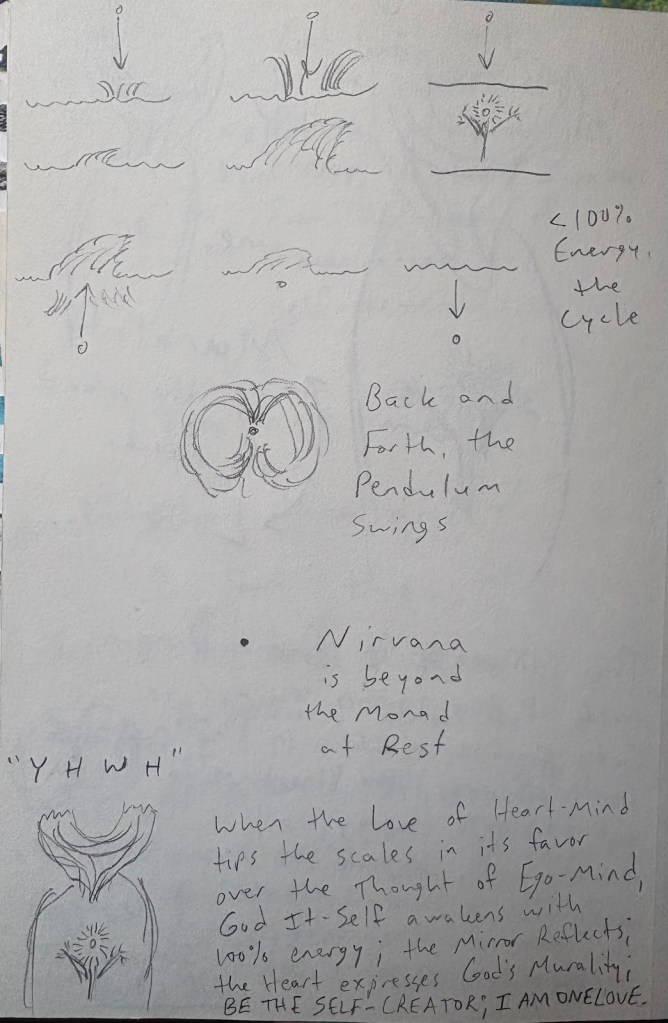 < 100%
Energy,
the
Cycle
Back and
Forth, the
Pendulum
Swings
Nirvana
is beyond
the Monad
at Rest
"YHWH"
When the Love of Heart-Mind
tips the scales in its favor
over the Thought of Ego-Mind,
God It-Self awakens with
100% energy; the Mirror Reflects;
the Heart expresses God's Murality;
BE THE SELF-CREATOR; I AM ONELOVE.